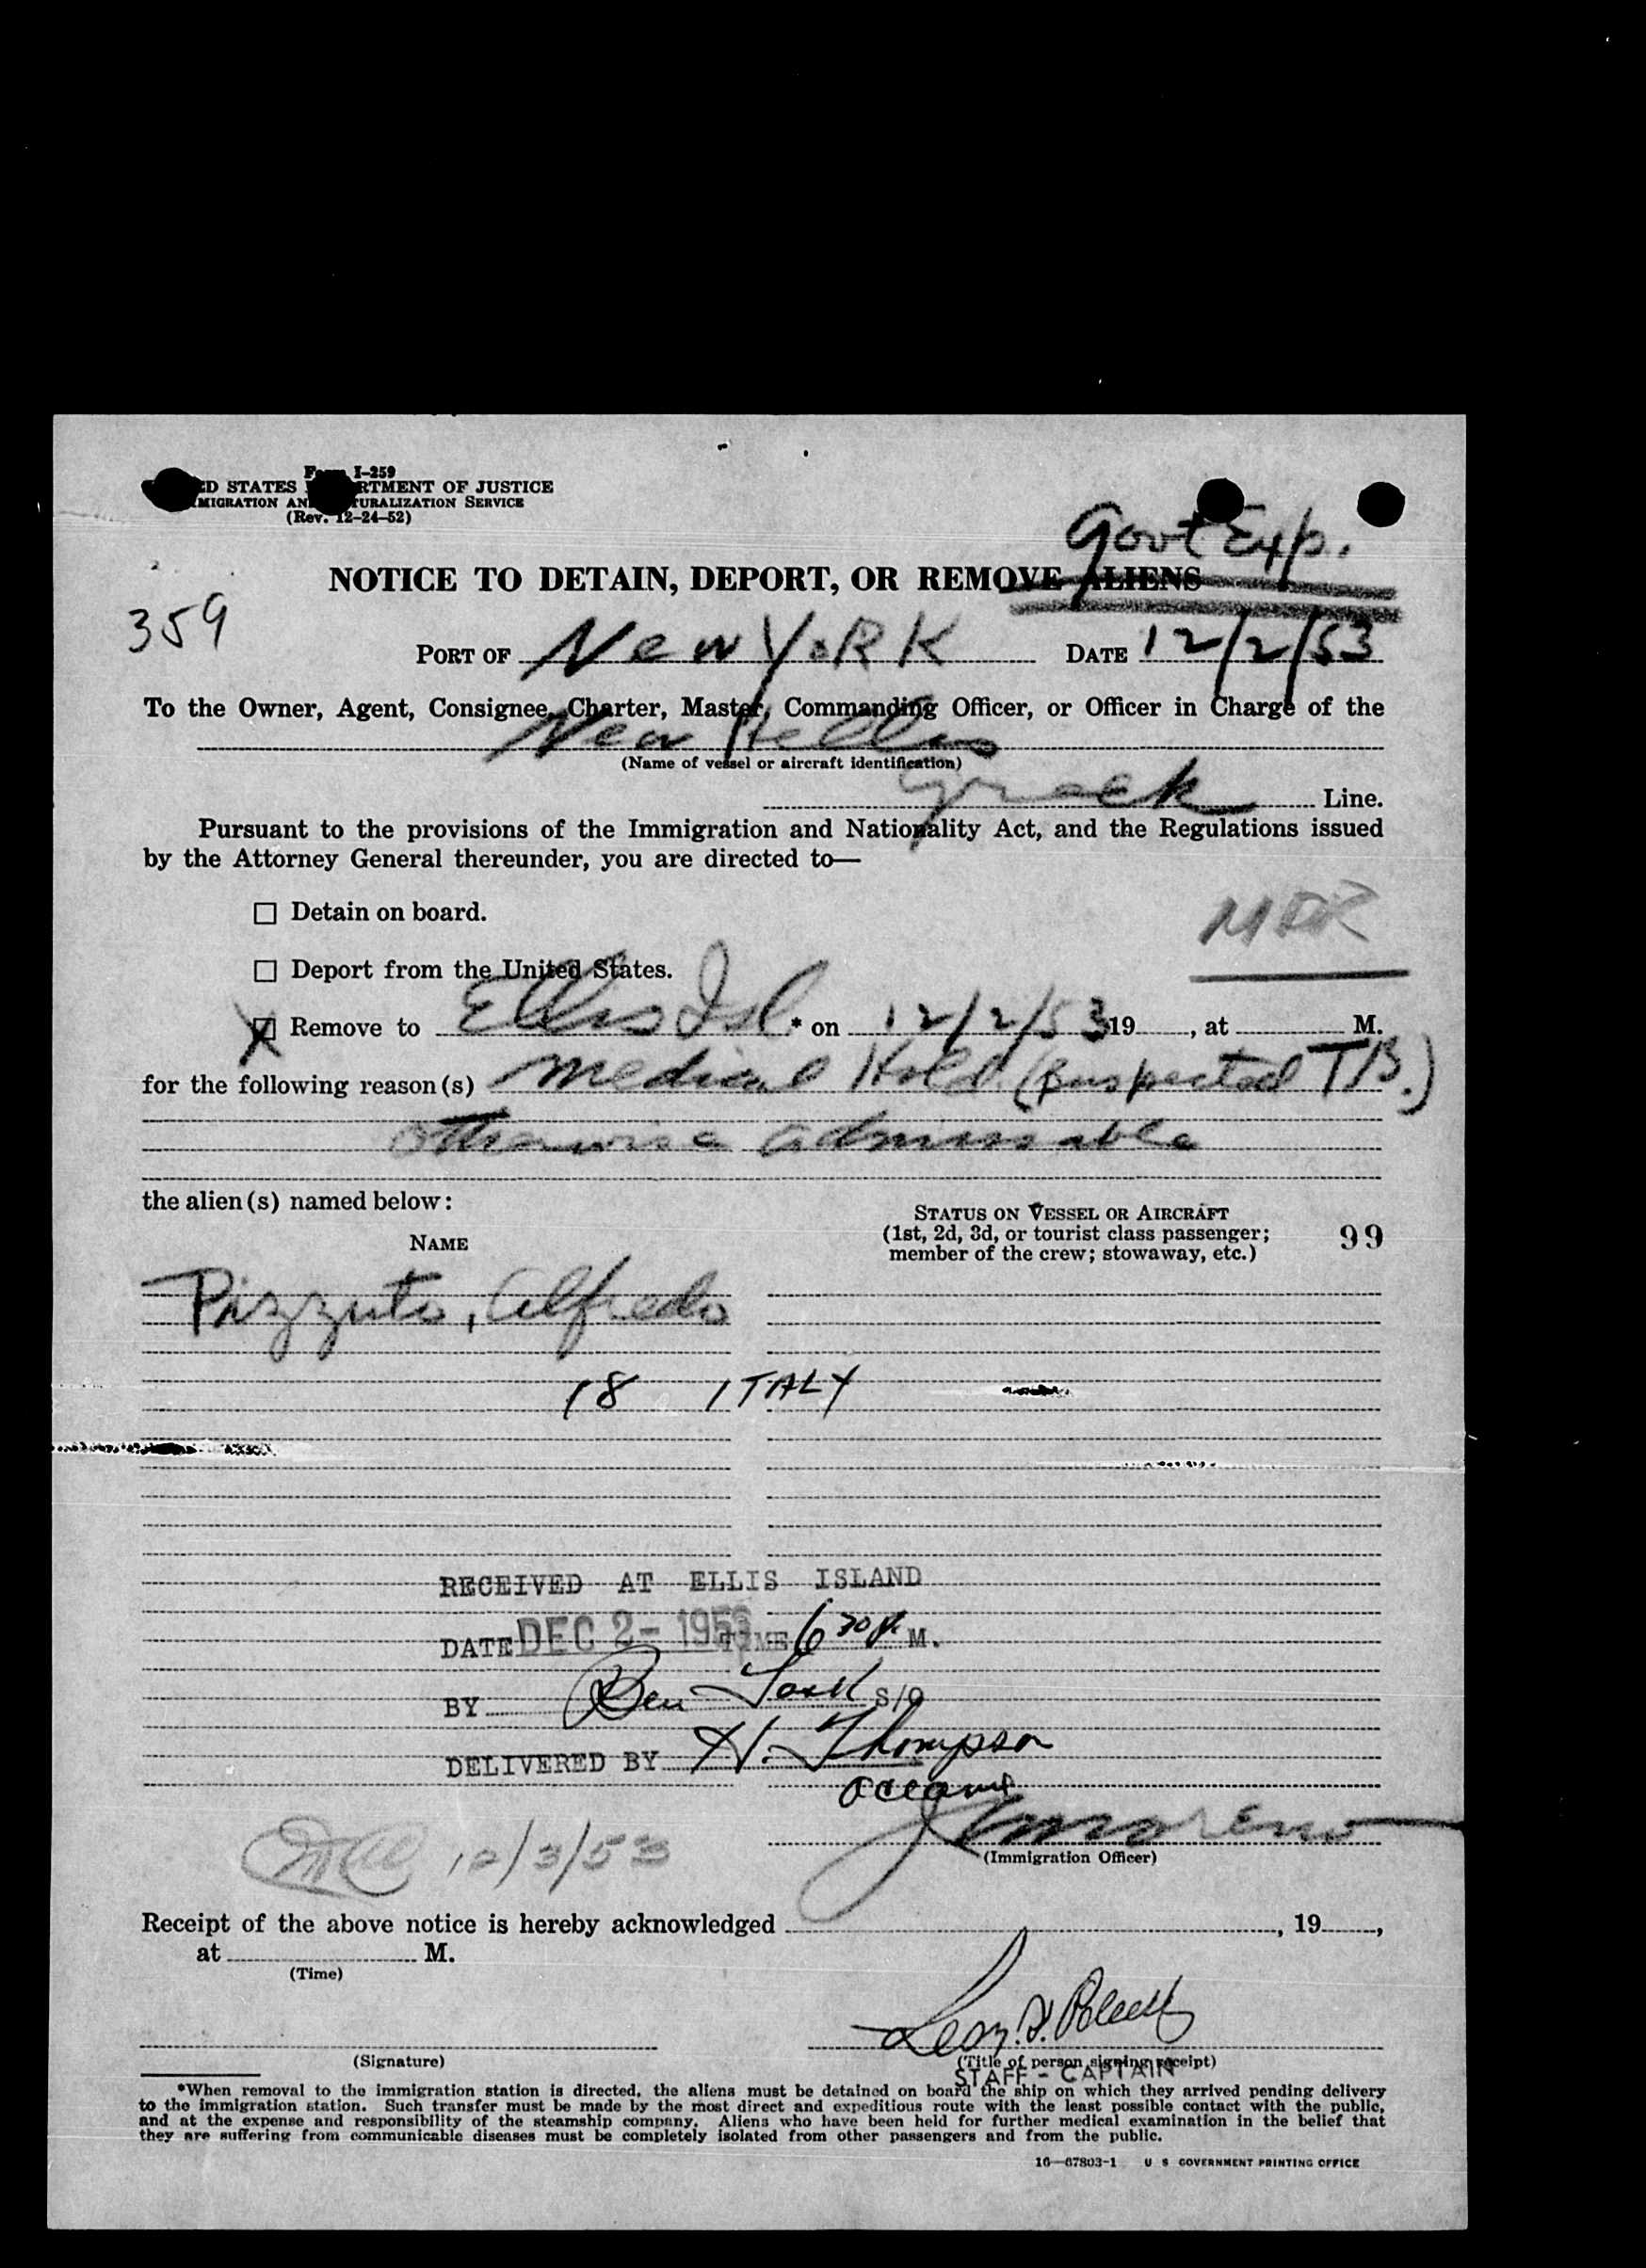 Form I-259
UNITED STATES DEPARTMENT OF JUSTICE
IMMIGRATION AND NATURALIZATION SERVICE
(Rev. 12-24-52)
Govt Exp.
NOTICE TO DETAIN, DEPORT, OR REMOVE ALIENS
359
PORT OF New YORK DATE 12/2/53
To the Owner, Agent, Consignee, Charter, Master, Commanding Officer, or Officer in Charge of the
New Hellas
(Name of vessel or aircraft identification)
Greek Line.
Pursuant to the provisions of the Immigration and Nationality Act, and the Regulations issued
by the Attorney General thereunder, you are directed to—
Detain on board.
Deport from the United States.
X Remove to Ellis Isl. * on 12/2/53 19 , at M.
for the following reason(s) Medical Hold (suspected TB.)
otherwise admissable
the alien(s) named below:
STATUS ON VESSEL OR AIRCRAFT
(1st, 2d, 3d, or tourist class passenger;
member of the crew; stowaway, etc.)
99
NAME
Pizzuto, Alfredo
18 ITALY
RECEIVED AT ELLIS ISLAND
DATE DEC 2- 1953 TIME 6 30 P. M.
BY Ben S/O
DELIVERED BY H. Thompson
(Immigration Officer)
12/3/53
Receipt of the above notice is hereby acknowledged , 19 ,
at M.
(Time)
(Signature)
(Title of person signing receipt)
STAFF - CAPTAIN
*When removal to the immigration station is directed, the aliens must be detained on board the ship on which they arrived pending delivery
to the immigration station. Such transfer must be made by the most direct and expeditious route with the least possible contact with the public,
and at the expense and responsibility of the steamship company. Aliens who have been held for further medical examination in the belief that
they are suffering from communicable diseases must be completely isolated from other passengers and from the public.
16—67803-1 U S GOVERNMENT PRINTING OFFICE